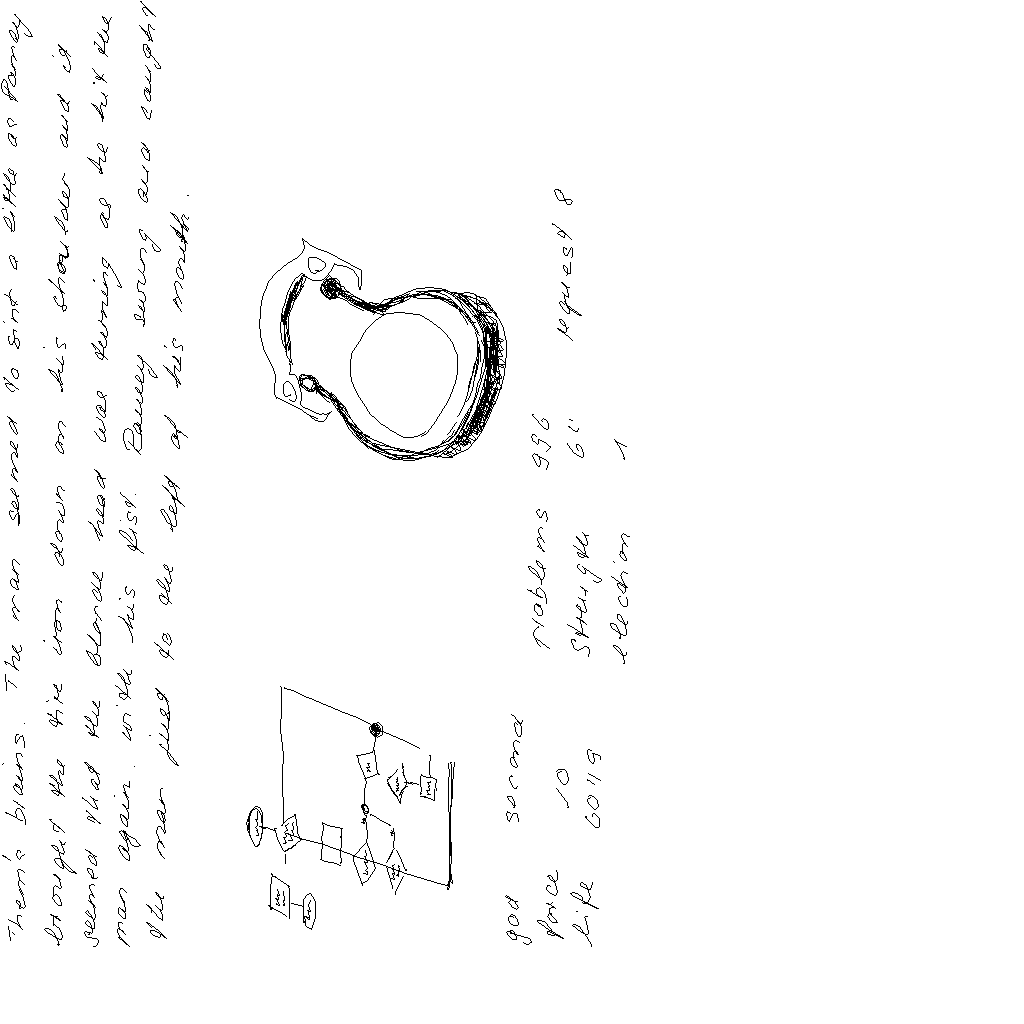 Them's brains. The man seemed to sink a little as Ramey
brought the tire iron down on his shoulder and it
seemed that the blonde head was turning as he hit the
man again. with his fist. Ramey swung and caught
the man just to the left of his mouth.
god second
force 10 problems 996 request 8
life strength
election 1